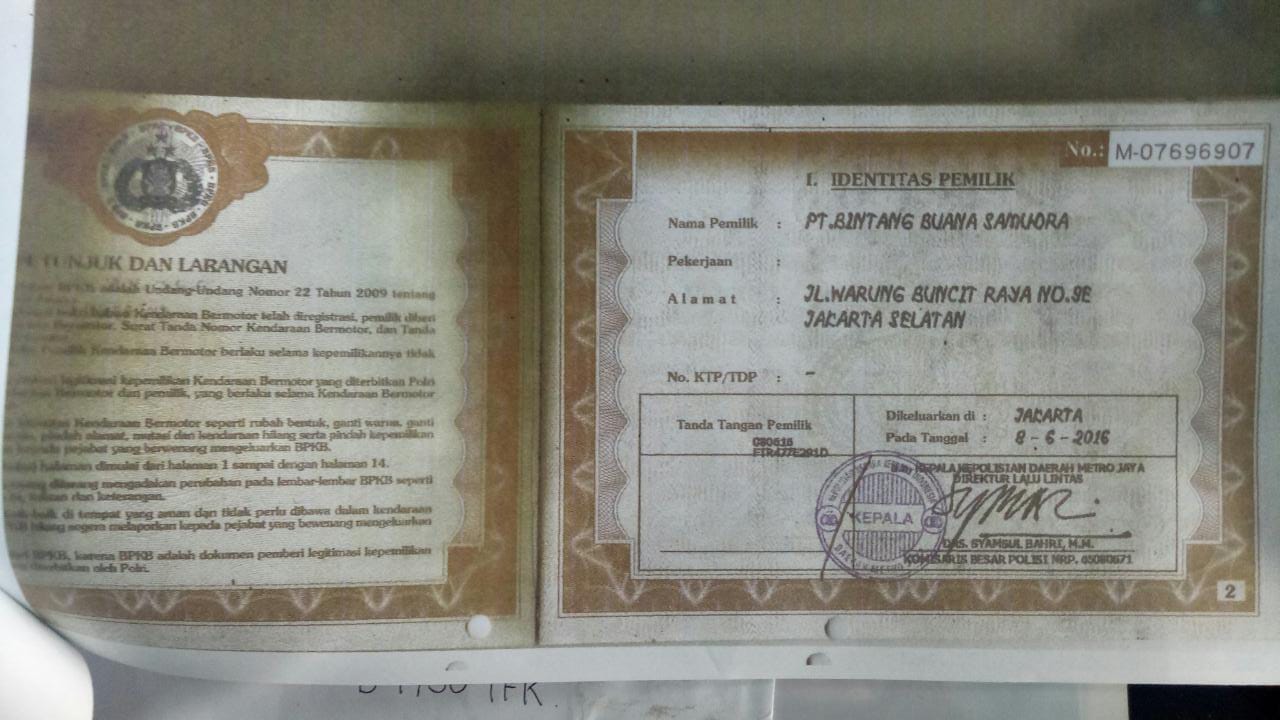 TUNJUK DAN LARANGAN
BPKB adalah Undang-Undang Nomor 22 Tahun 2009 tentang
bahwa Kendaraan Bermotor telah diregistrasi, pemilik diberi
Bermotor, Surat Tanda Nomor Kendaraan Bermotor, dan Tanda
Kendaraan Bermotor berlaku selama kepemilikannya tidak
legitimasi kepemilikan Kendaraan Bermotor yang diterbitkan Polri
Bermotor dan pemilik, yang berlaku selama Kendaraan Bermotor
Kendaraan Bermotor seperti rubah bentuk, ganti warna, ganti
pindah alamat, mutasi dan kendaraan hilang serta pindah kepemilikan
pejabat yang berwenang mengeluarkan BPKB.
halaman dimulai dari halaman 1 sampai dengan halaman 14.
dilarang mengadakan perubahan pada lembar-lembar BPKB seperti
dan keterangan.
baik di tempat yang aman dan tidak perlu dibawa dalam kendaraan
hilang segera melaporkan kepada pejabat yang bewenang mengeluarkan
BPKB, karena BPKB adalah dokumen pemberi legitimasi kepemilikan
diterbitkan oleh Polri.
No.: M-07696907
I. IDENTITAS PEMILIK
Nama Pemilik : PT.BINTANG BUANA SAMUDRA
Pekerjaan :
Alamat : JL.WARUNG BUNCIT RAYA NO.9E
JAKARTA SELATAN
No. KTP/TDP : -
Tanda Tangan Pemilik
080616
FTR477E291D
Dikeluarkan di : JAKARTA
Pada Tanggal : 8 - 6 - 2016
KEPALA KEPOLISIAN DAERAH METRO JAYA
DIREKTUR LALU LINTAS
KEPALA
DRS. SYAMSUL BAHRI, M.M.
KOMISARIS BESAR POLISI NRP. 65080671
2